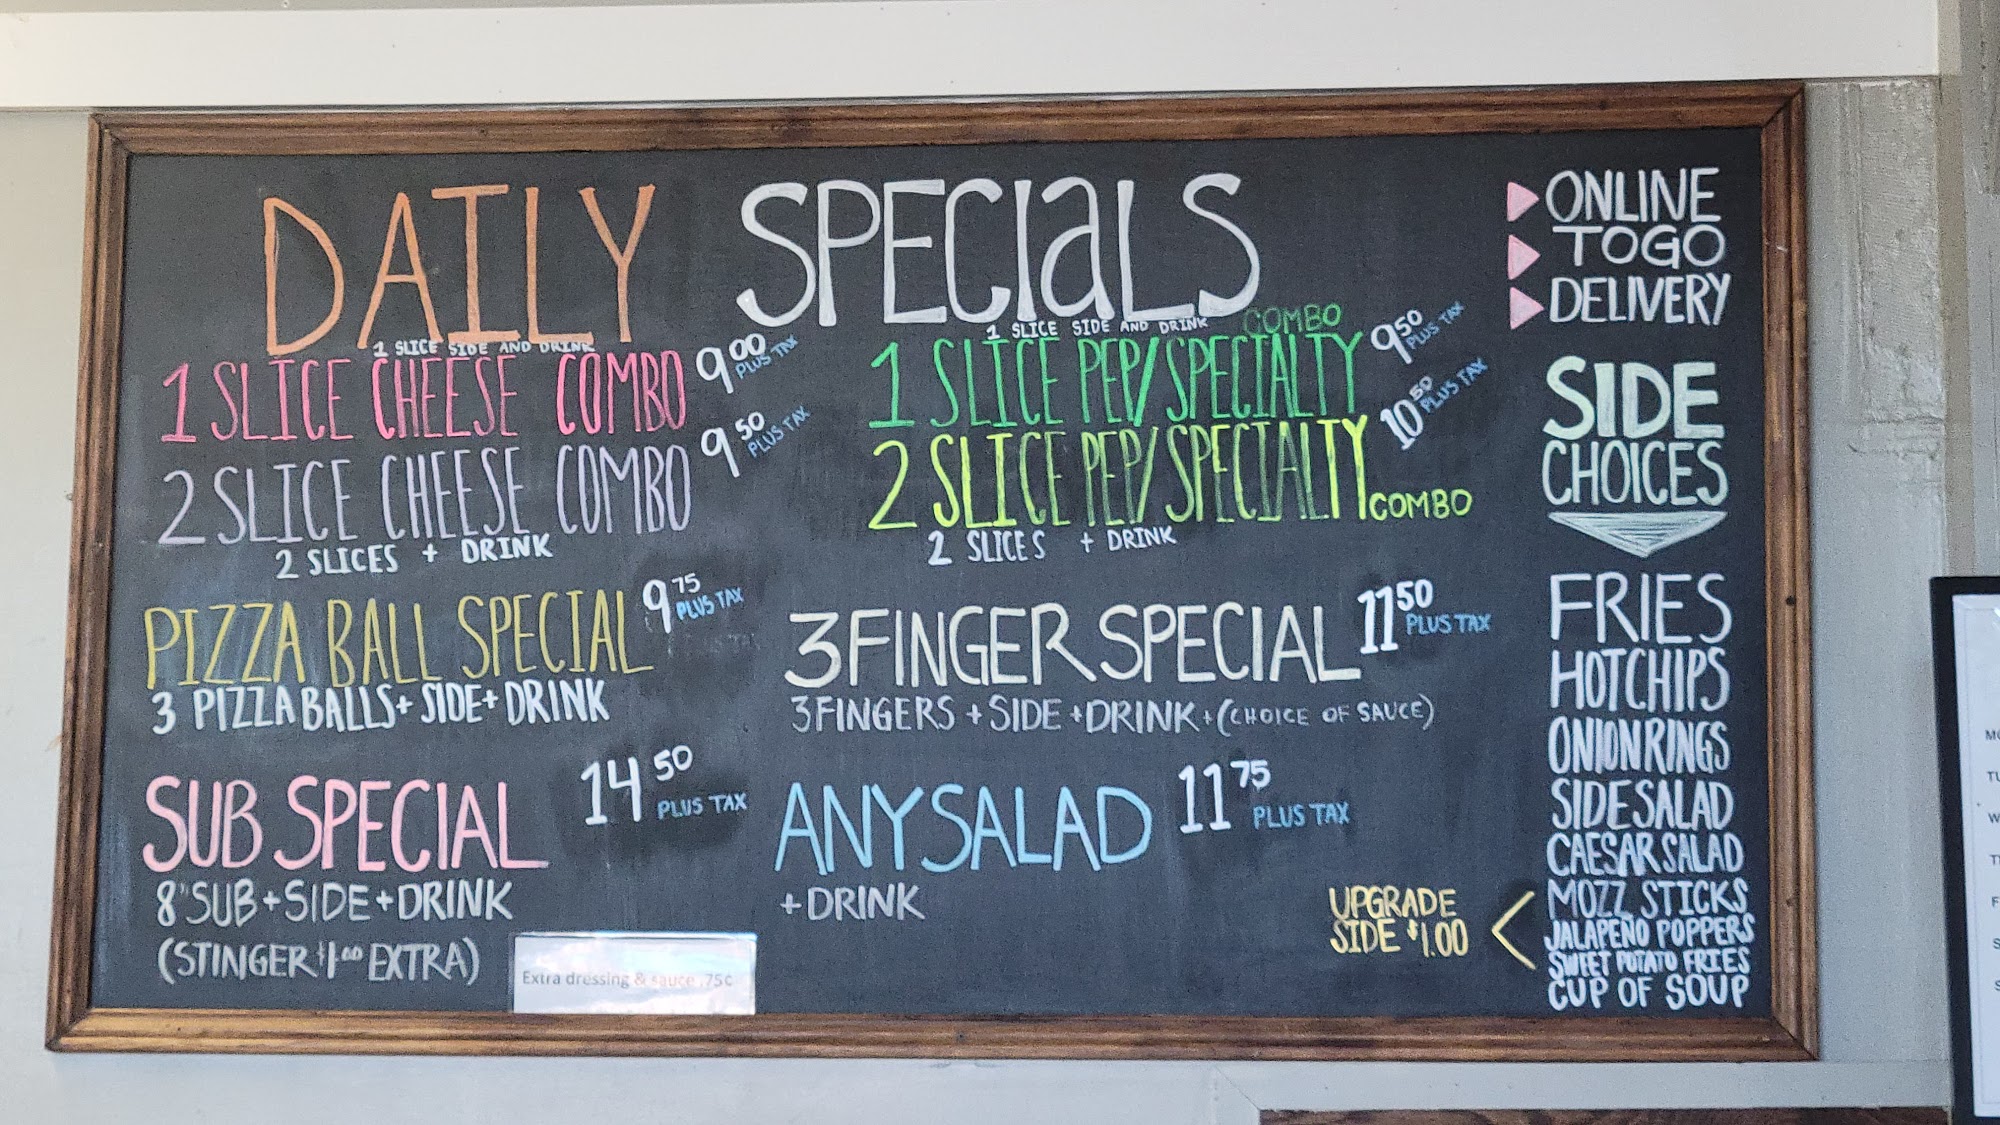 DAILY SPECIALS
1 SLICE SIDE AND DRINK
1 SLICE CHEESE COMBO 9.00 PLUS TAX
2 SLICE CHEESE COMBO 9.50 PLUS TAX
2 SLICES + DRINK
1 SLICE SIDE AND DRINK
1 SLICE PEP/SPECIALTY COMBO 9.50 PLUS TAX
2 SLICE PEP/SPECIALTY COMBO 10.50 PLUS TAX
2 SLICES + DRINK
PIZZA BALL SPECIAL 9.75 PLUS TAX
3 PIZZA BALLS + SIDE + DRINK
3 FINGER SPECIAL 11.50 PLUS TAX
3 FINGERS + SIDE + DRINK + (CHOICE OF SAUCE)
SUB SPECIAL 14.50 PLUS TAX
8" SUB + SIDE + DRINK
(STINGER $1.00 EXTRA)
Extra dressing & sauce .75¢
ANY SALAD 11.75 PLUS TAX
+ DRINK
ONLINE
TOGO
DELIVERY
SIDE
CHOICES
FRIES
HOT CHIPS
ONION RINGS
SIDE SALAD
CAESAR SALAD
UPGRADE
SIDE $1.00
MOZZ STICKS
JALAPEÑO POPPERS
SWEET POTATO FRIES
CUP OF SOUP